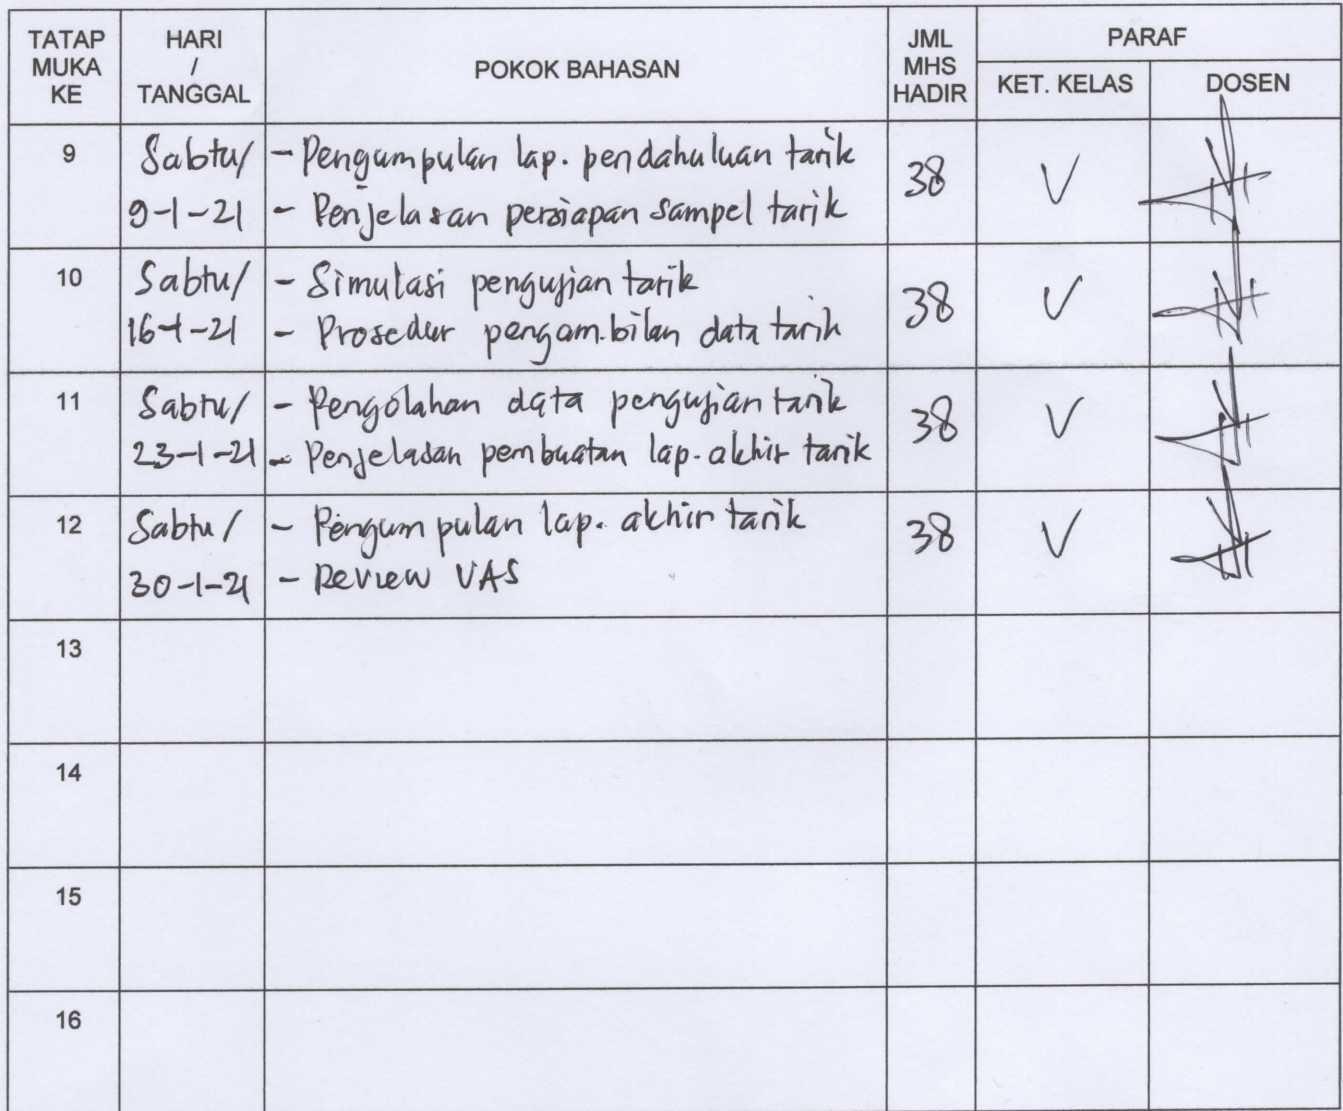 TATAP MUKA KE
HARI / TANGGAL
POKOK BAHASAN
JML MHS HADIR
PARAF
KET. KELAS
DOSEN
9
Sabtu/ 9-1-21
- Pengumpulan lap. pendahuluan tarik
- Penjelasan persiapan sampel tarik
38
V
10
Sabtu/ 16-1-21
- Simulasi pengujian tarik
- Prosedur pengambilan data tarik
38
V
11
Sabtu/ 23-1-21
- Pengolahan data pengujian tarik
- Penjelasan pembuatan lap. akhir tarik
38
V
12
Sabtu/ 30-1-21
- Pengumpulan lap. akhir tarik
- Review UAS
38
V
13
14
15
16